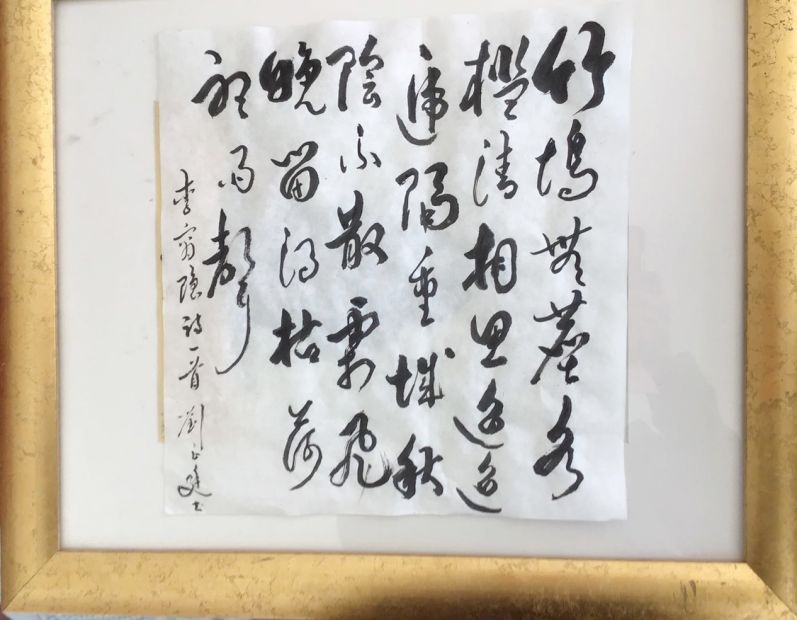 竹塢無塵水
檻清相思迢迢
遞隔重城秋
陰不散霜飛
晚留得枯荷
聽雨聲
李商隱詩一首 劉